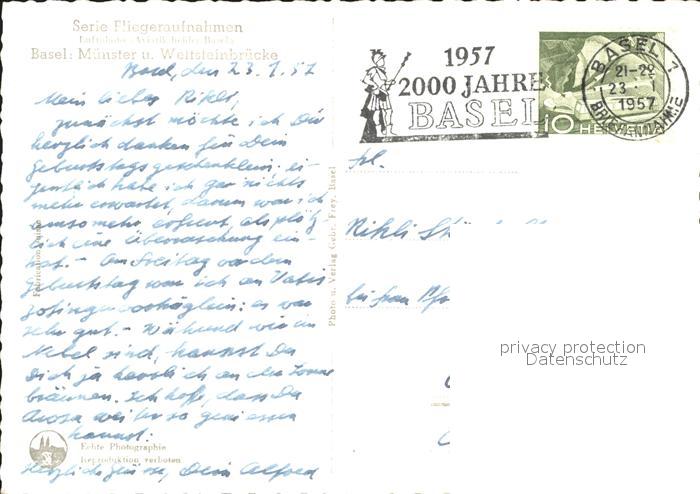 Serie Fliegeraufnahmen
Basel: Münster u. Wettsteinbrücke
Basel, den 23.1.57
Mein liebes Rikli,
zunächst möchte ich Dir
herzlich danken für Dein
Geburtstagsgeschenklein: ei-
gentlich habe ich gar nichts
mehr erwartet, darum war ich
umsomehr erfreut, als plötz-
lich eine Überraschung ein-
traf. - Am Freitag vor dem
Geburtstag war ich an Vatis
Zofinger : es war
sehr gut. - Während wir im
Nebel sind, kannst Du
Dich ja herrlich an der Sonne
bräunen. Ich hoffe, dass Du
Arosa weiter so geniessen
kannst.
Herzliche Grüsse, Dein Alfred
Echte Photographie
Reproduktion verboten
Photo u. Verlag Gebr. Frey, Basel
1957
2000 JAHRE
BASEL
BASEL 1
21-22
23. I
1957
BRIEFANNAHME
10 HELVETIA
Frl.
Rikli
bei Frau
privacy protection
Datenschutz